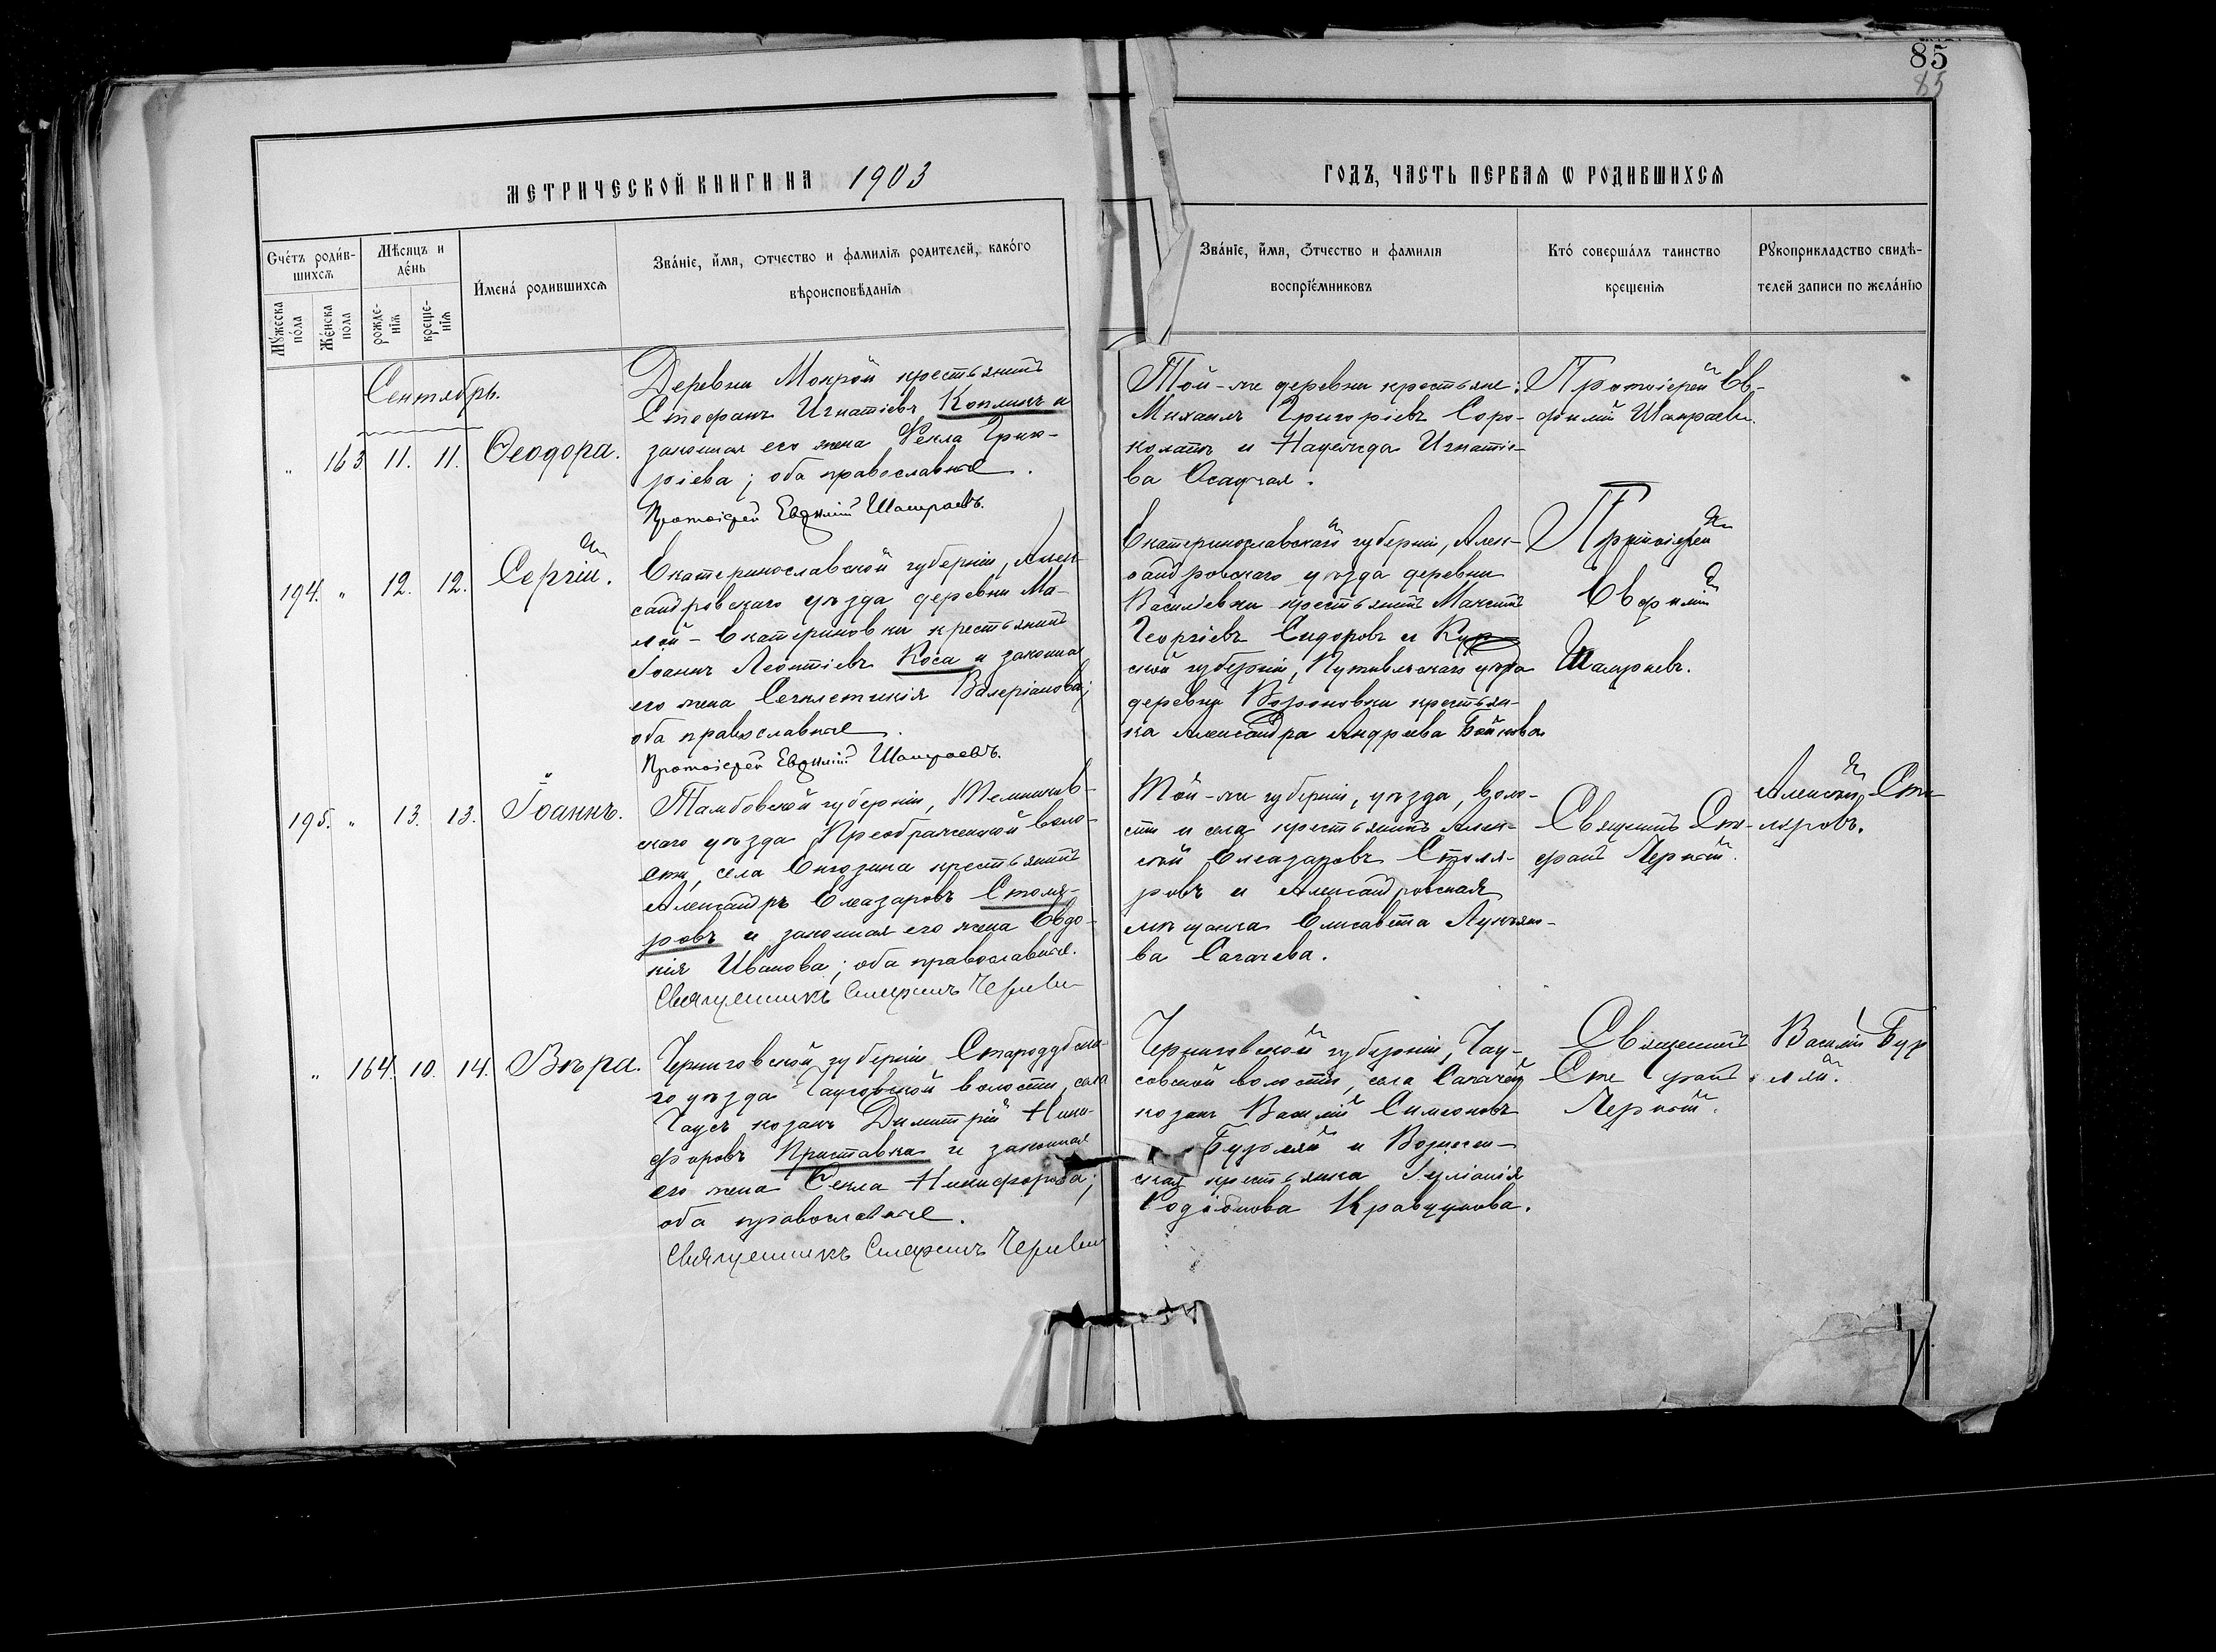 85
85
МЕТРИЧЕСКОЙ КНИГИ НА 1903
ГОДЪ, ЧАСТЬ ПЕРВАЯ Ѡ РОДИВШИХСЯ
Сче́тъ роди́в-
шихсѧ
Мѣсяцъ и
де́нь
И́мена́ родившихсѧ
Зва́нїе, и́мя, ѻтчество и фамилїѧ родителей, како́го
вѣроисповѣданїѧ
Мꙋжеска
по́ла
Же́нска
пола
рожде-
нїѧ
креще-
нїѧ
Зва́нїе, и́мя, ѻтчество и фамилїя
воспрїе́мниковъ
Кто́ соверша́лъ таинство
крещенїѧ
Рꙋкоприкладство свидѣ-
телей записи по жела́нїю
Сентябрь.
„ 163 11. 11. Ѳеодора.
Деревни Мокрой крестьянинъ
Стефанъ Игнатіевъ и
законная его жена Ѳекла Григо-
ріева; оба православные.
Протоіерей Евфимій Шамраевъ.
Той-же деревни крестьяне:
Михаилъ Григоріевъ Соро-
колатъ и Надежда Игнатіе-
ва Осадчая.
Протоіерей Ев-
фимій Шамраевъ.
194. „ 12. 12. Сергій.
Екатеринославской губерніи, Алек-
сандровскаго уѣзда деревни Ма-
лой-Екатериновки крестьянинъ
Іоаннъ Леонтіевъ Коса и законная
его жена Валеріанова;
оба православные.
Протоіерей Евфимій Шамраевъ.
Екатеринославской губерніи, Алек-
сандровскаго уѣзда деревни
Васильевки крестьянинъ Максимъ
Георгіевъ Сидоровъ и Кур-
ской губерніи, Путивльскаго уѣзда
деревни Вороновки крестьян-
ка Александра Андреева Бойкова
Протоіерей
Евфимій
Шамраевъ.
195. „ 13. 13. Іоаннъ.
Тамбовской губерніи, Темников-
скаго уѣзда Преображенской воло-
сти, села крестьянинъ
Александръ Елеазаровъ Столя-
ровъ и законная его жена Евдо-
кія Иванова; оба православные.
Священникъ Стефанъ
Той-же губерніи, уѣзда, воло-
сти и села крестьянинъ Алек-
сѣй Елеазаровъ Столя-
ровъ и Александровская
мѣщанка Елисавета Лукьяно-
ва Сагачева.
Священникъ Сте-
фанъ
Алексѣй Сто-
ляровъ.
„ 164. 10. 14. Вѣра.
Черниговской губерніи Стародубска-
го уѣзда Чаусовской волости, села
Чаусъ козакъ Димитрій Ники-
форовъ Приставка и законная
его жена Ѳекла Никифорова;
оба православные.
Священникъ Стефанъ
Черниговской губерніи, Чау-
совской волости, села
козакъ Василій Симеоновъ
Бурляй и Вознесен-
ская крестьянка Іуліанія
Родіонова Кравцунова.
Священникъ
Сте фанъ
Василій Бур
ляй.